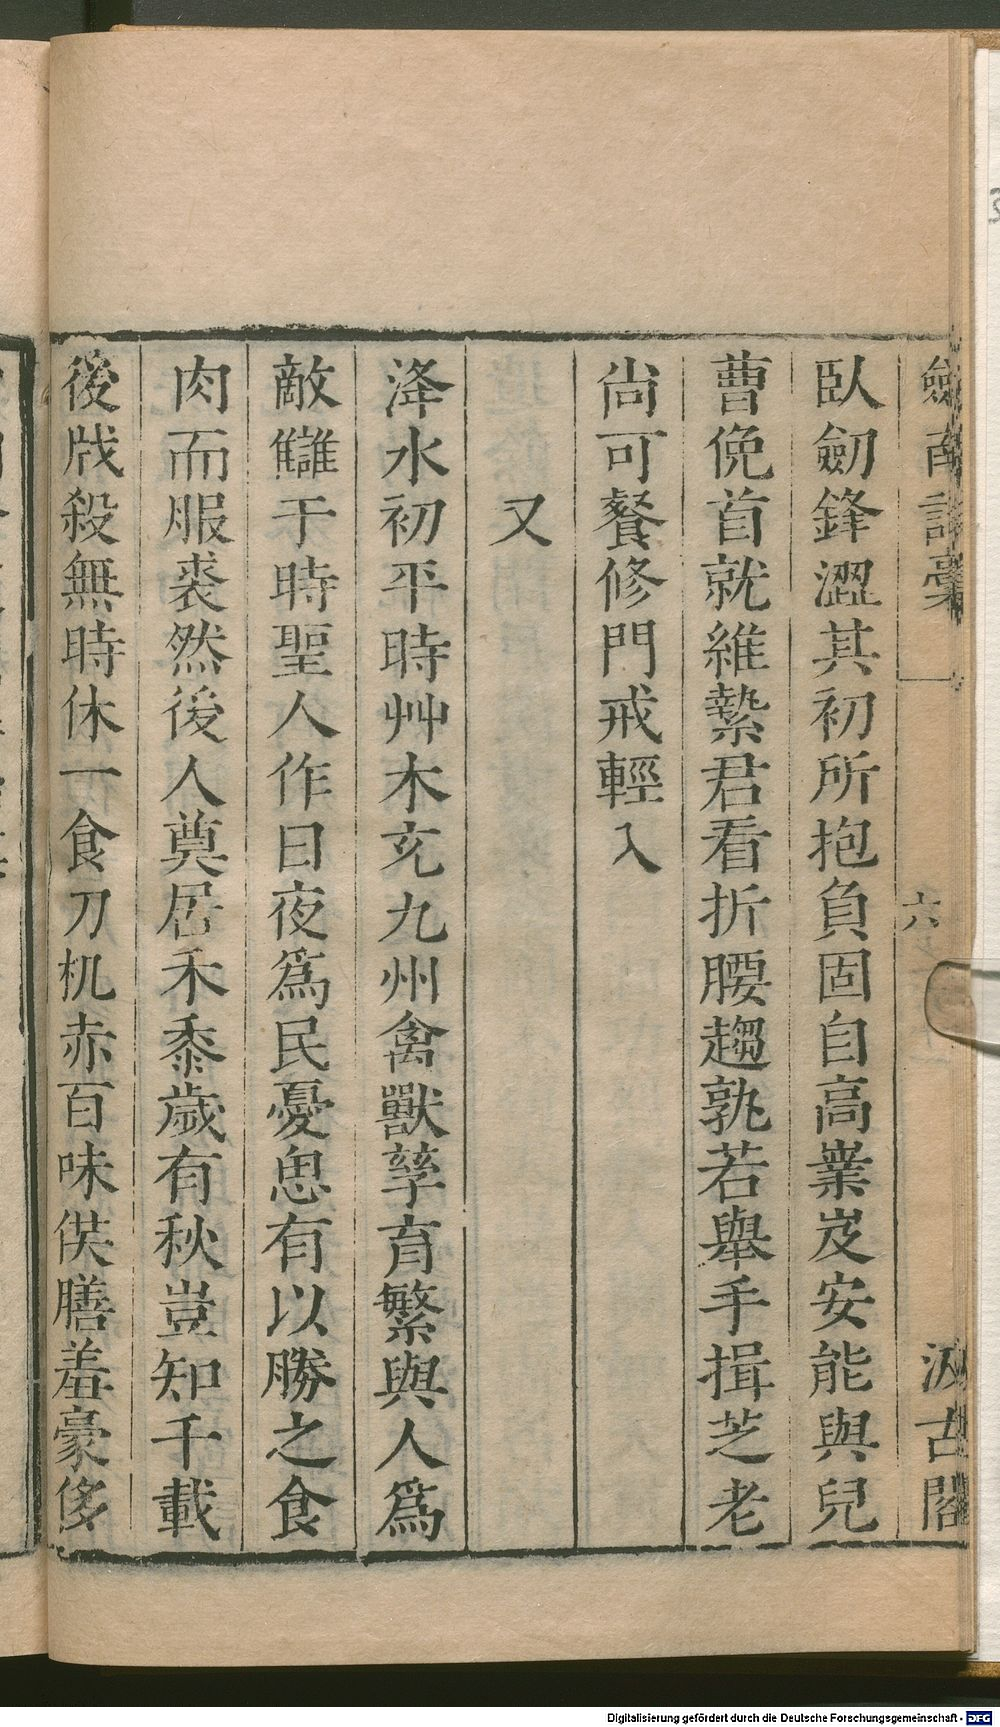 劍南詩藁
六
汲古閣
臥劒鋒澀其初所抱負固自高業岌安能與兒
曹俛首就維縶君看折腰趨孰若舉手揖芝老
尚可餐修門戒輕入
又
洚水初平時艸木充九州禽獸孳育繁與人爲
敵讎于時聖人作日夜爲民憂思有以勝之食
肉而服裘然後人奠居禾黍歲有秋豈知千載
後戕殺無時休一食刀机赤百味供膳羞豪侈
Digitalisierung gefördert durch die Deutsche Forschungsgemeinschaft - DFG